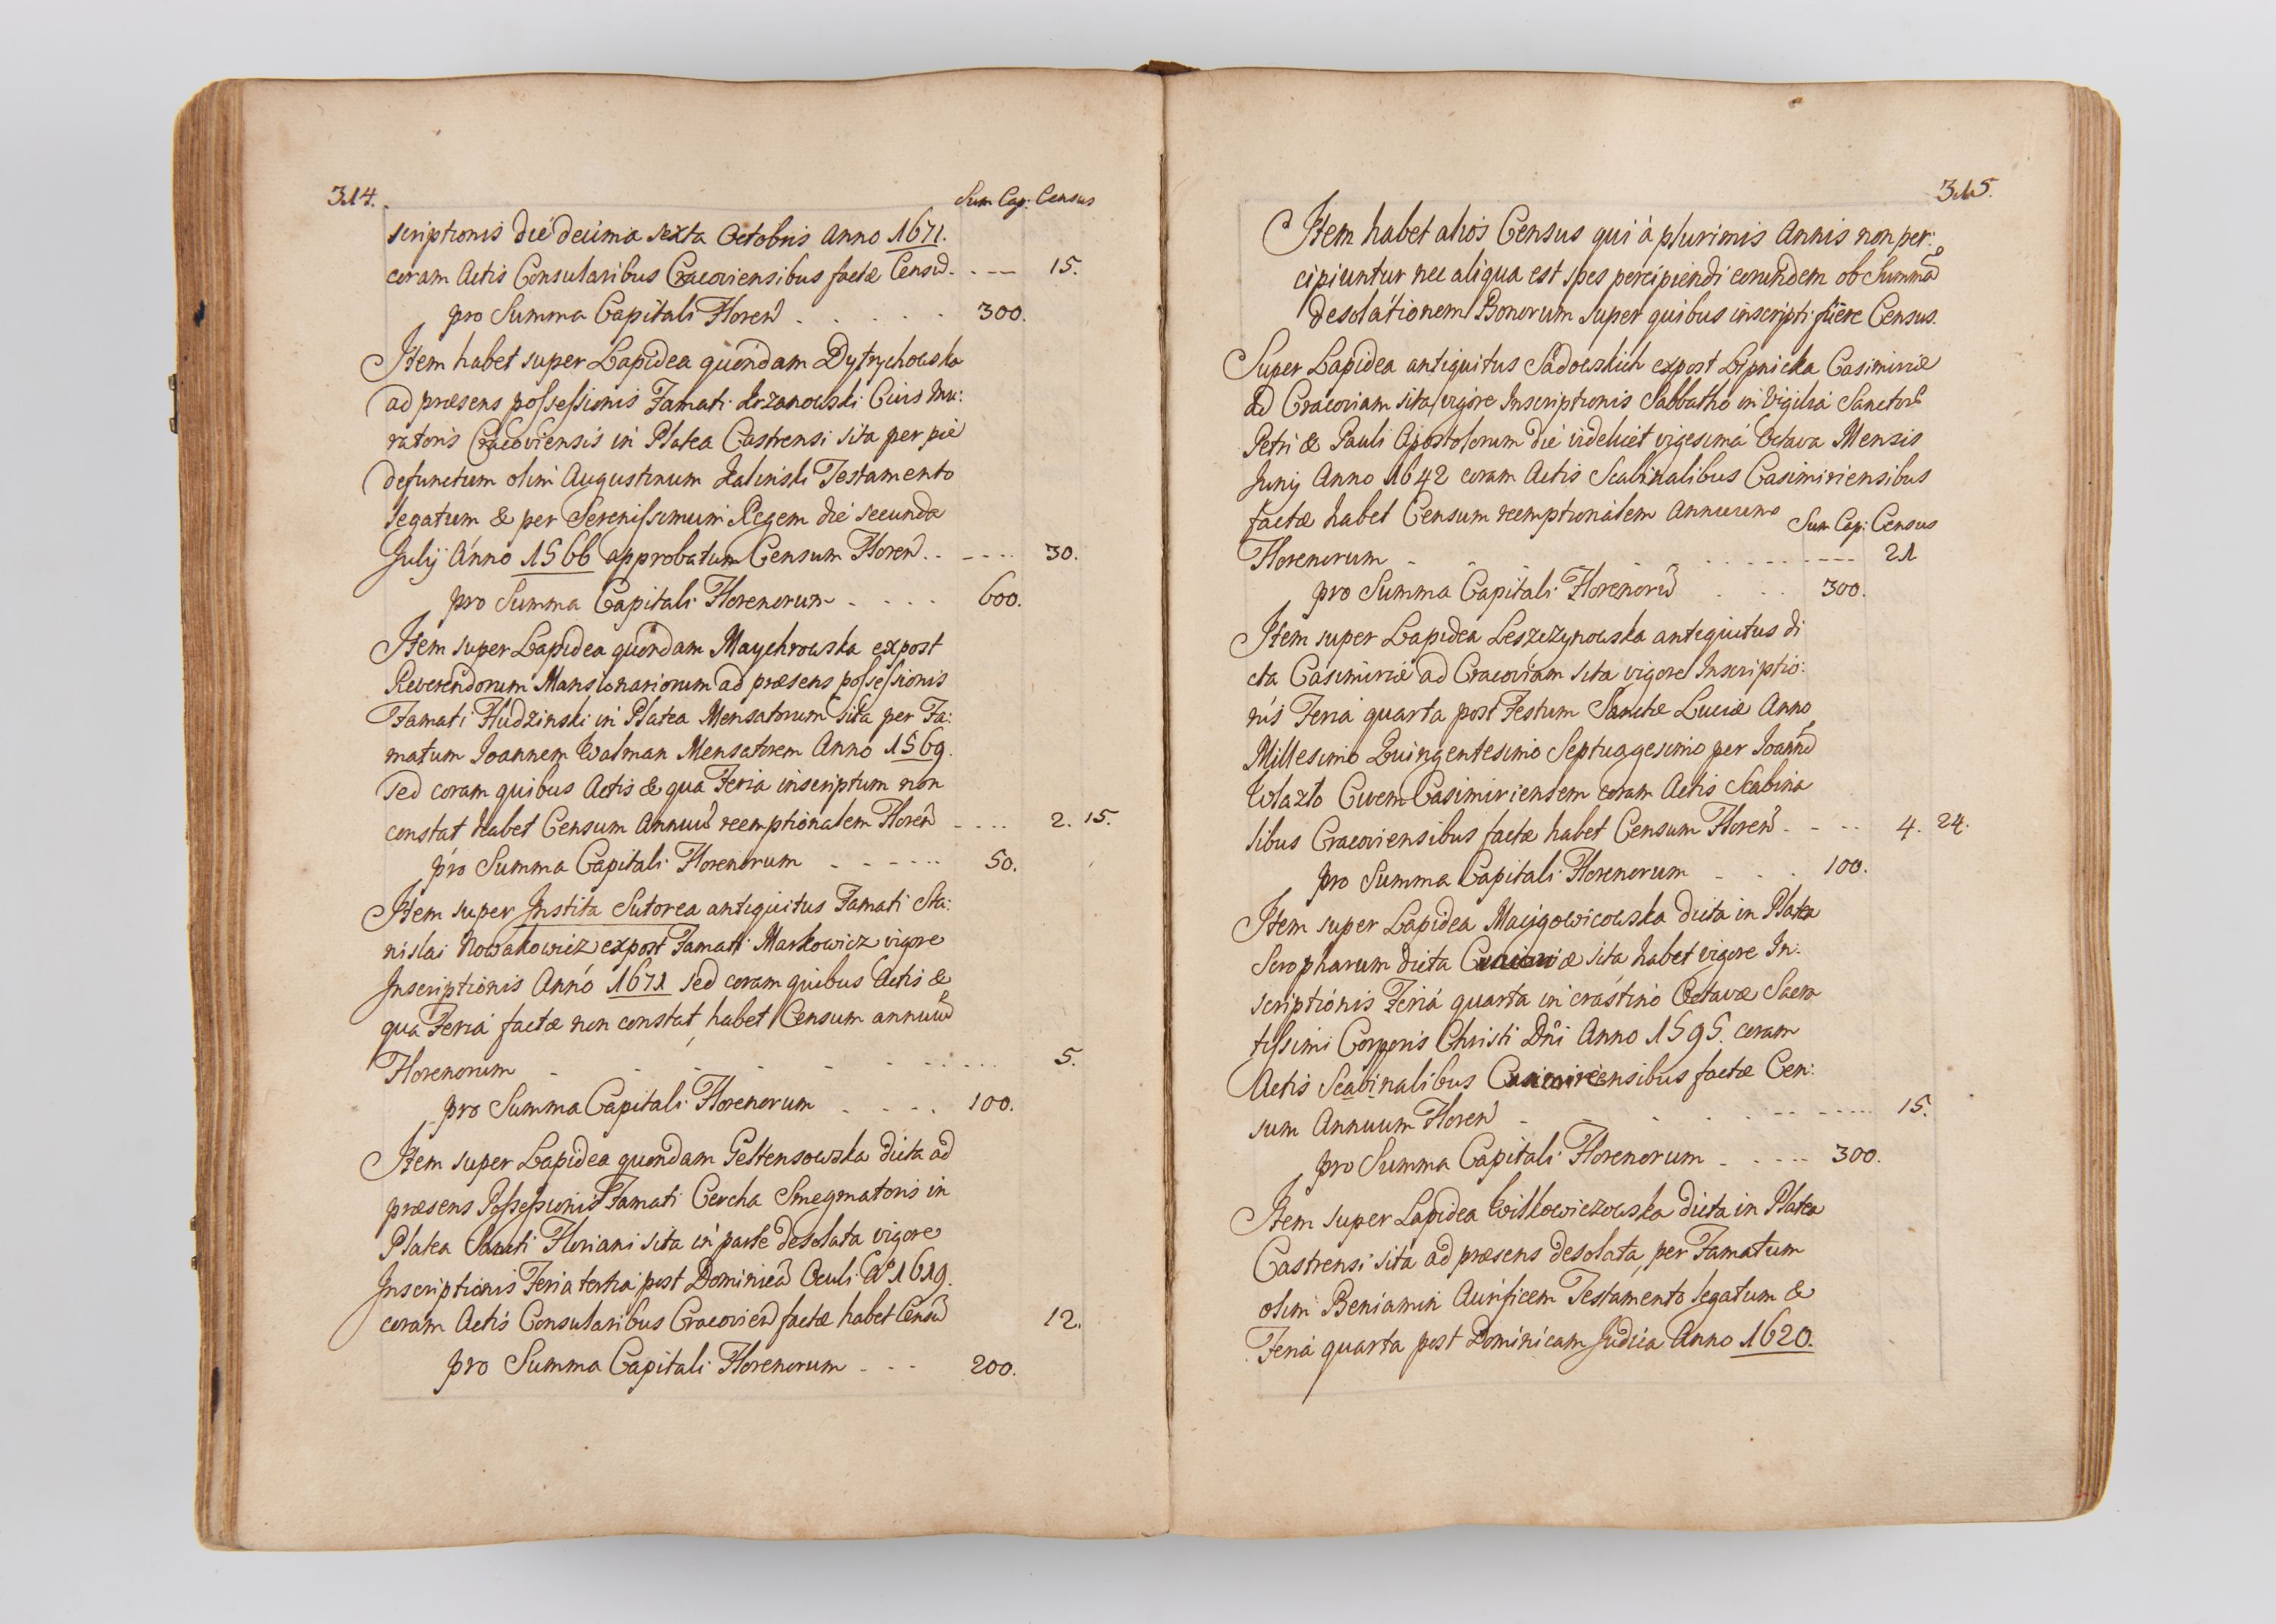 314.
Sum Cap: Census
scriptionis die decima sexta Octobris Anno 1671.
coram Actis Consularibus Cracoviensibus factæ Censũ. . -- 15.
pro Summa Capitali Floren̄ . . . . . 300.
Item habet super Lapidea quondam Dytrychowska
ad præsens possessionis Famati Krzanowski Civis Mu:
ratoris Cracoviensis in Platea Castrensi sita per pie
defunctum olim Augustinum Kalinski Testamento
legatum & per Serenissimum Regem die secunda
Julij Anno 1566 approbatum Censum Floren̄. . - - - . . 30.
pro Summa Capitali Florenorum . . . . 600.
Item super Lapidea quondam Maychrowska expost
Reverendorum Mansionariorum ad præsens possessionis
Famati Hudzinski in Platea Mensatorum sita per Fa:
matum Joannem Walman Mensatorem Anno 1569.
sed coram quibus Actis & qua Feria inscriptum non
constat habet Censum Annuũ reemptionalem Floren̄ - . . . 2. 15.
pro Summa Capitali Florenorum . - - - . . . 50.
Item super Instita Sutorea antiquitus Famati Sta:
nislai Nowakowicz expost Famati Markowicz vigore
Inscriptionis Anno 1671 sed coram quibus Actis &
qua Feria factæ non constat habet Censum annuũ
Florenorum - - - - - - - . . . 5.
pro Summa Capitali Florenorum . . - . 100.
Item super Lapidea quondam Geltensowska dicta ad
præsens Possessionis Famati Cercha Smegmatoris in
Platea Sancti Floriani sita in parte desolata vigore
Inscriptionis Feria tertia post Dominicã Oculi Aº 1619.
coram Actis Consularibus Cracovien̄ factæ habet Censũ 12.
pro Summa Capitali Florenorum . - - 200.
315.
Item habet alios Census qui à plurimis Annis non per:
cipiuntur nec aliqua est spes percipiendi eorundem ob Summã
desolationem Bonorum super quibus inscripti fuere Census.
Super Lapidea antiquitus Sadowskich expost Lipnicka Casimiriæ
ad Cracoviam sita vigore Inscriptionis Sabbatho in Vigilia Sanctorũ
Petri & Pauli Apostolorum die videlicet vigesima Octava Mensis
Junij Anno 1642 coram Actis Scabinalibus Casimiriensibus
factæ habet Censum reemptionalem Annuum
Sum Cap: Census
Florenorum - - - - . . . - - - 21
pro Summa Capitali Florenorũ . . . 300.
Item super Lapidea Leszczynowska antiquitus di
cta Casimiriæ ad Cracoviam sita vigore Inscriptio:
nis Feria quarta post Festum Sanctæ Luciæ Anno
Millesimo Quingentesimo Septuagesimo per Joannẽ
Wlazło Civem Casimiriensem coram Actis Scabina
libus Cracoviensibus factæ habet Censum Floren̄. - . . 4. 24.
pro Summa Capitali Florenorum - . . 100.
Item super Lapidea dicta in Platea
Scropharum dicta Casimiriæ sita habet vigore In:
scriptionis Feria quarta in crastino Octavæ Sacra
tissimi Corporis Christi Dñi Anno 1595. coram
Actis Scabinalibus Casimiriensibus factæ Cen:
sum Annuum Floren̄ - - - . . - - - . . . 15.
pro Summa Capitali Florenorum - . - - . . 300.
Item super Lapidea Witkowiczowska dicta in Platea
Castrensi sita ad præsens desolata, per Famatum
olim Beniamin Aurificem Testamento legatum &
Feria quarta post Dominicam Judica Anno 1620.